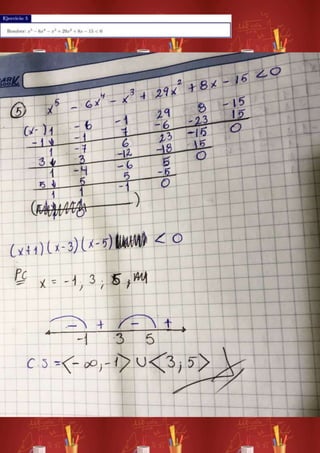 Ejercicio 5
Resolver: x⁵ − 6x⁴ − x³ + 29x² + 8x − 15 < 0
⑤ x⁵ - 6x⁴ - x³ + 29x² + 8x - 15 < 0
(x-) 1 -6 -1 29 8 -15
-1 ↓ -1 7 -6 -23 15
1 -7 6 23 -15 0
3 ↓ 3 -12 -18 15
1 -4 -6 5 0
5 ↓ 5 5 -5
1 1 -1 0
( )
(x+1)(x-3)(x-5) < 0
PC x = -1, 3, 5,
- + - +
-1 3 5
C.S = <-∞, -1> ∪ <3; 5>